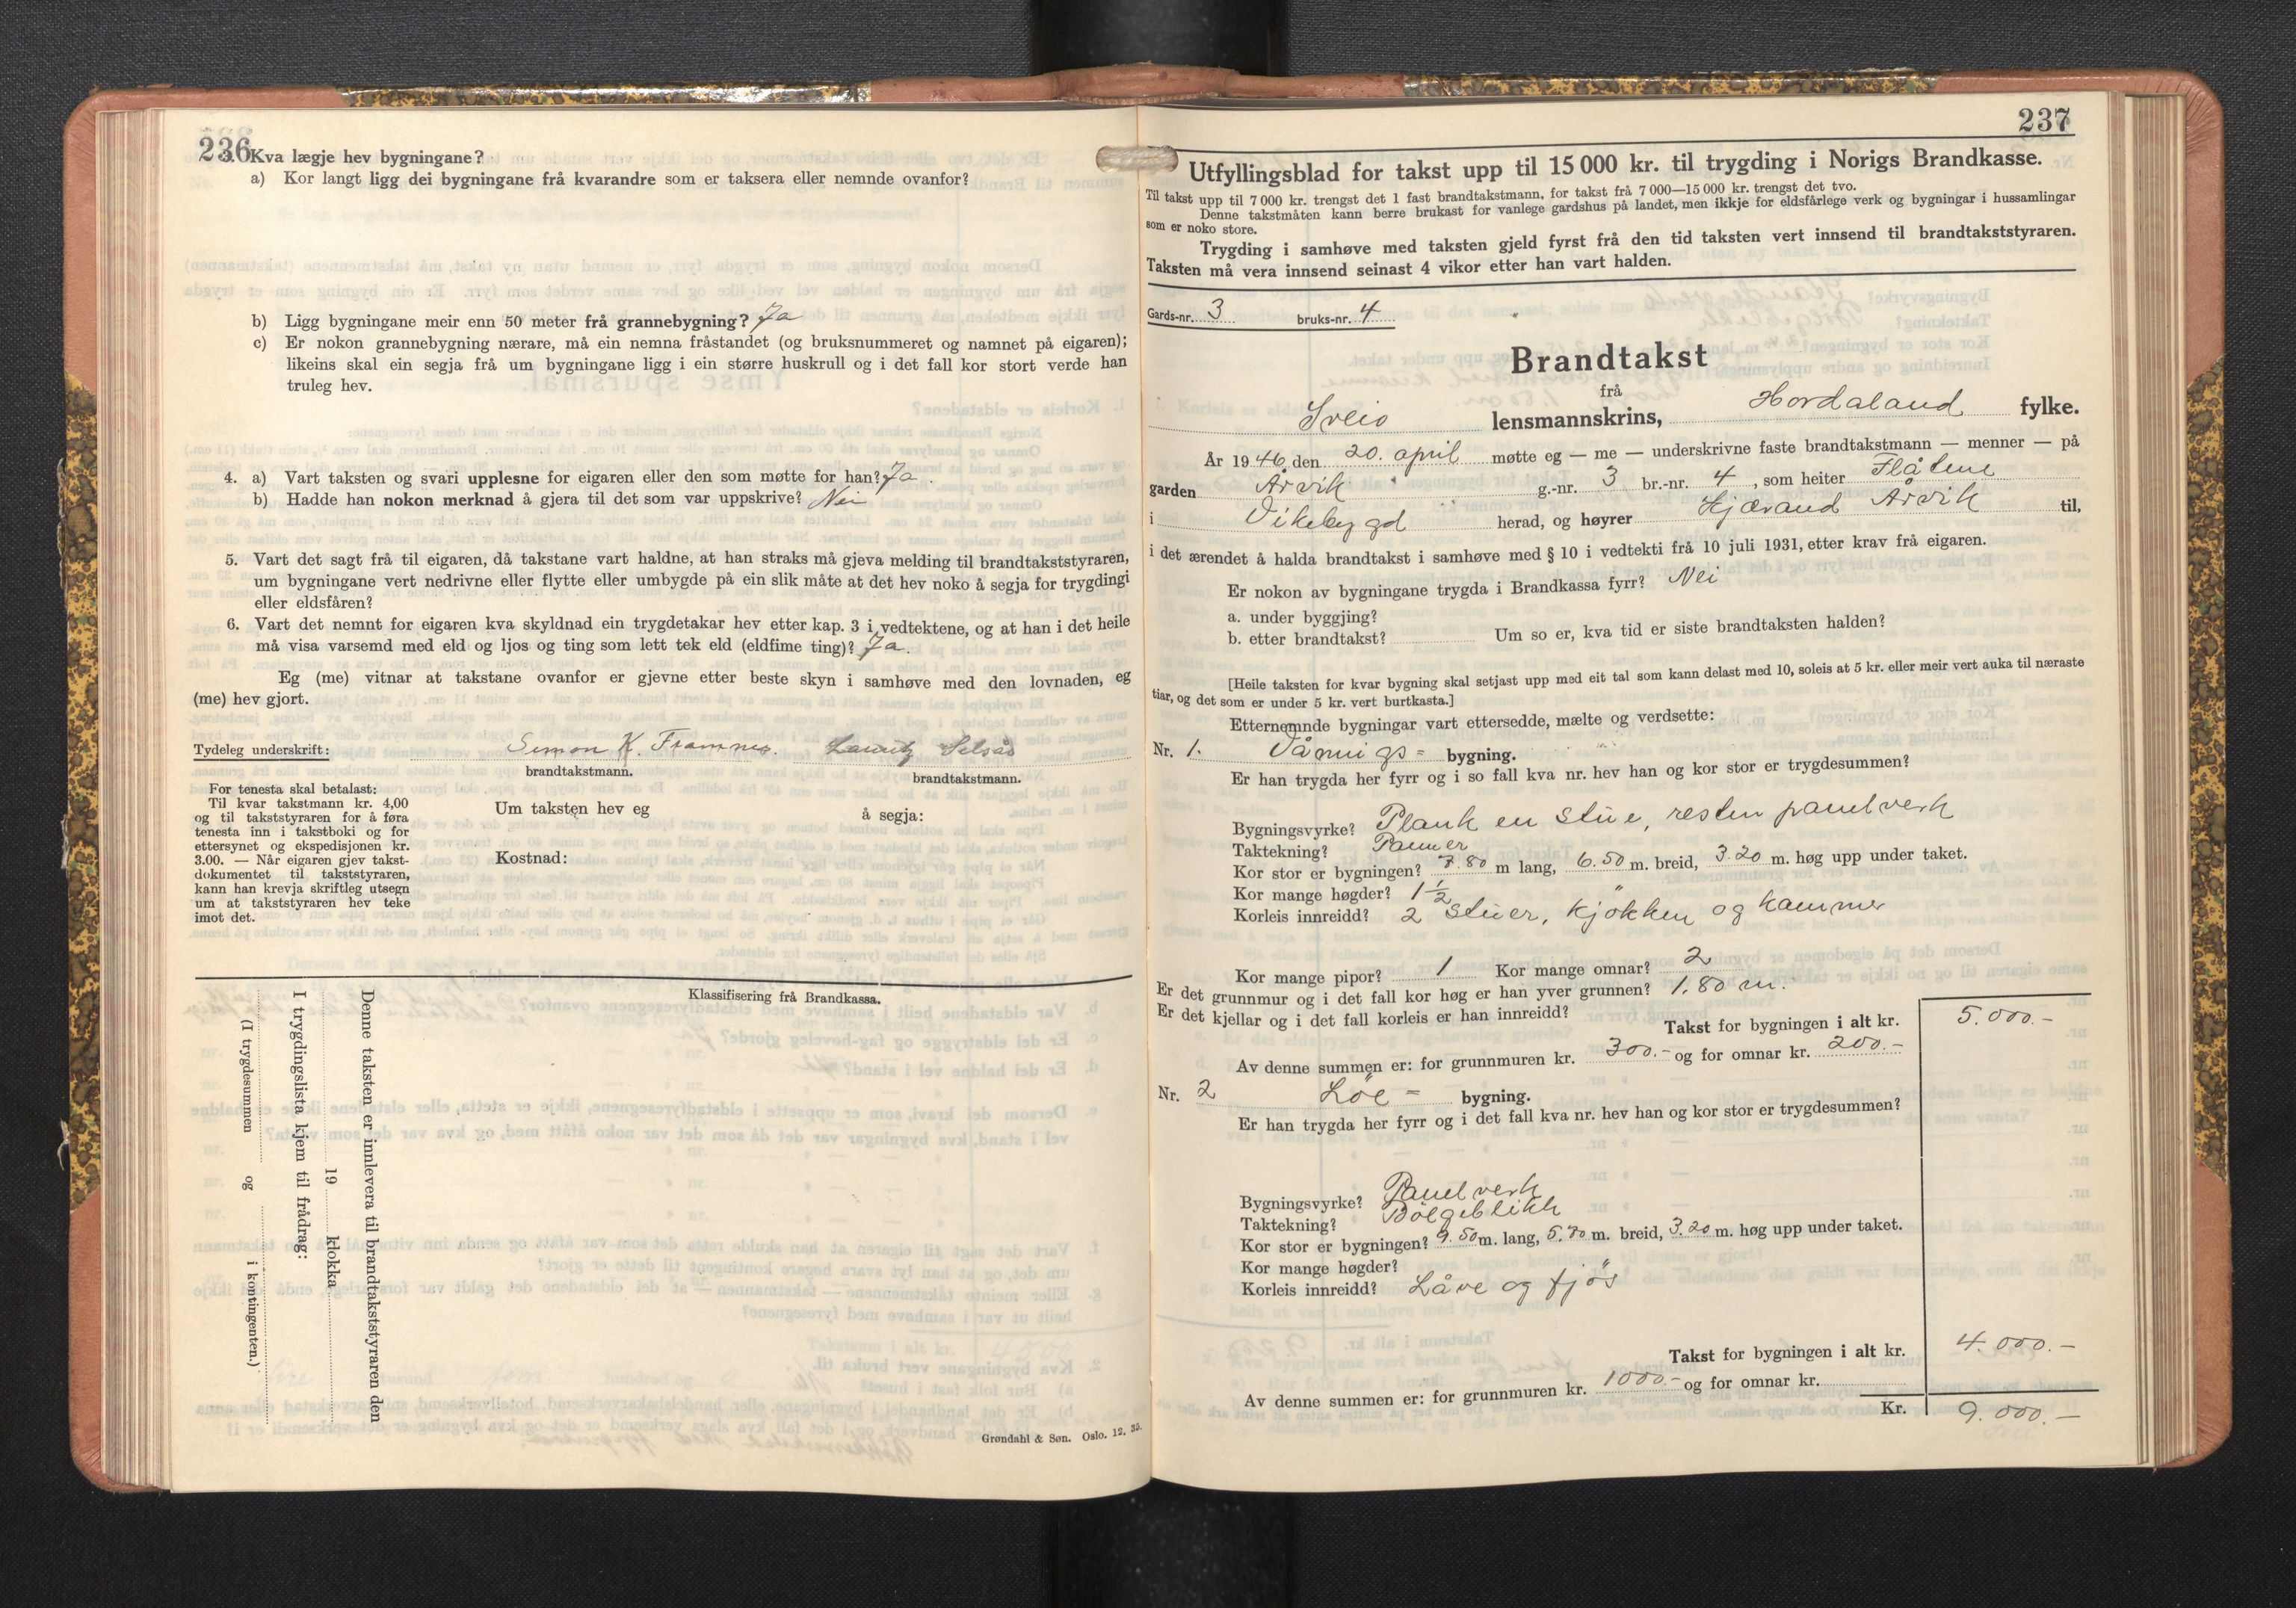 236
3. Kva lægje hev bygningane?
a) Kor langt ligg dei bygningane frå kvarandre som er taksera eller nemnde ovanfor?
b) Ligg bygningane meir enn 50 meter frå grannebygning? Ja
c) Er nokon grannebygning nærare, må ein nemna fråstandet (og bruksnummeret og namnet på eigaren);
likeins skal ein segja frå um bygningane ligg i ein større huskrull og i det fall kor stort verde han
truleg hev.
4. a) Vart taksten og svari upplesne for eigaren eller den som møtte for han? Ja.
b) Hadde han nokon merknad å gjera til det som var uppskrive? Nei
5. Vart det sagt frå til eigaren, då takstane vart haldne, at han straks må gjeva melding til brandtakststyraren,
um bygningane vert nedrivne eller flytte eller umbygde på ein slik måte at det hev noko å segja for trygdingi
eller eldsfåren?
6. Vart det nemnt for eigaren kva skyldnad ein trygdetakar hev etter kap. 3 i vedtektene, og at han i det heile
må visa varsemd med eld og ljos og ting som lett tek eld (eldfime ting)? Ja.
Eg (me) vitnar at takstane ovanfor er gjevne etter beste skyn i samhøve med den lovnaden, eg
(me) hev gjort.
Tydeleg underskrift: Simon K. Framnes. Lauritz Selsås
brandtakstmann. brandtakstmann.
For tenesta skal betalast:
Til kvar takstmann kr. 4,00
og til takststyraren for å føra
tenesta inn i takstboki og for
ettersynet og ekspedisjonen kr.
3.00. — Når eigaren gjev takst-
dokumentet til takststyraren,
kann han krevja skriftleg utsegn
um at takststyraren hev teke
imot det.
Um taksten hev eg å segja:
Kostnad:
Klassifisering frå Brandkassa.
Denne taksten er innlevera til brandtakststyraren den
19 klokka
I trygdingslista kjem til frådrag:
(I trygdesummen og i kontingenten.)
Grøndahl & Søn. Oslo. 12. 35.
237
Utfyllingsblad for takst upp til 15 000 kr. til trygding i Norigs Brandkasse.
Til takst upp til 7 000 kr. trengst det 1 fast brandtakstmann, for takst frå 7 000—15 000 kr. trengst det tvo.
Denne takstmåten kann berre brukast for vanlege gardshus på landet, men ikkje for eldsfårlege verk og bygningar i hussamlingar
som er noko store.
Trygding i samhøve med taksten gjeld fyrst frå den tid taksten vert innsend til brandtakststyraren.
Taksten må vera innsend seinast 4 vikor etter han vart halden.
Gards-nr. 3 bruks-nr. 4
Brandtakst
frå
Sveio lensmannskrins, Hordaland fylke.
År 1946 den 20. april møtte eg — me — underskrivne faste brandtakstmann — menner — på
garden Årvik g.-nr. 3 br.-nr. 4, som heiter Flåtene
i Vikebygd herad, og høyrer Hjærand Årvik til,
i det ærendet å halda brandtakst i samhøve med § 10 i vedtekti frå 10 juli 1931, etter krav frå eigaren.
Er nokon av bygningane trygda i Brandkassa fyrr? Nei
a. under byggjing?
b. etter brandtakst? Um so er, kva tid er siste brandtaksten halden?
[Heile taksten for kvar bygning skal setjast upp med eit tal som kann delast med 10, soleis at 5 kr. eller meir vert auka til næraste
tiar, og det som er under 5 kr. vert burtkasta.]
Etternemnde bygningar vart ettersedde, mælte og verdsette:
Nr. 1. Vånnigs= bygning.
Er han trygda her fyrr og i so fall kva nr. hev han og kor stor er trygdesummen?
Bygningsvyrke? Plank en stue, resten panelverk
Taktekning? Panner
Kor stor er bygningen? 7.80 m lang, 6.50 m. breid, 3.20 m. høg upp under taket.
Kor mange høgder? 1 1/2
Korleis innreidd? 2 stuer, kjökken og kammer
Kor mange pipor? 1 Kor mange omnar? 2
Er det grunnmur og i det fall kor høg er han yver grunnen? 1.80 m.
Er det kjellar og i det fall korleis er han innreidd?
Takst for bygningen i alt kr. 5.000.-
Av denne summen er: for grunnmuren kr. 300.- og for omnar kr. 200.-
Nr. 2 Löe= bygning.
Er han trygda her fyrr og i det fall kva nr. hev han og kor stor er trygdesummen?
Bygningsvyrke? Panelverk
Taktekning? Bölgeblikk
Kor stor er bygningen? 9.50 m. lang, 5.70 m. breid, 3.20 m. høg upp under taket.
Kor mange høgder?
Korleis innreidd? Låve og fjös
Takst for bygningen i alt kr. 4.000.-
Av denne summen er: for grunnmuren kr. 1000.- og for omnar kr.
Kr. 9.000.-